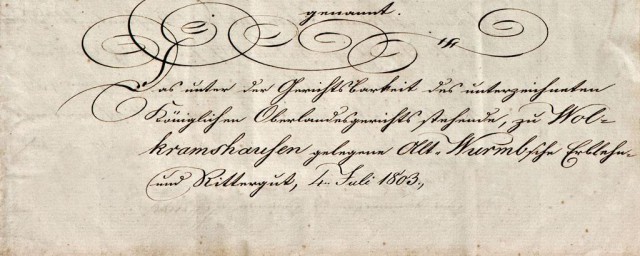 genannt.
Das unter der Gerichtsbarkeit des unterzeichneten
Königlichen Oberlandesgerichts stehende, zu Wol-
kramshausen gelegene Alt-Wurmbsche Erblehn-
und Rittergut, 4. Juli 1803.,